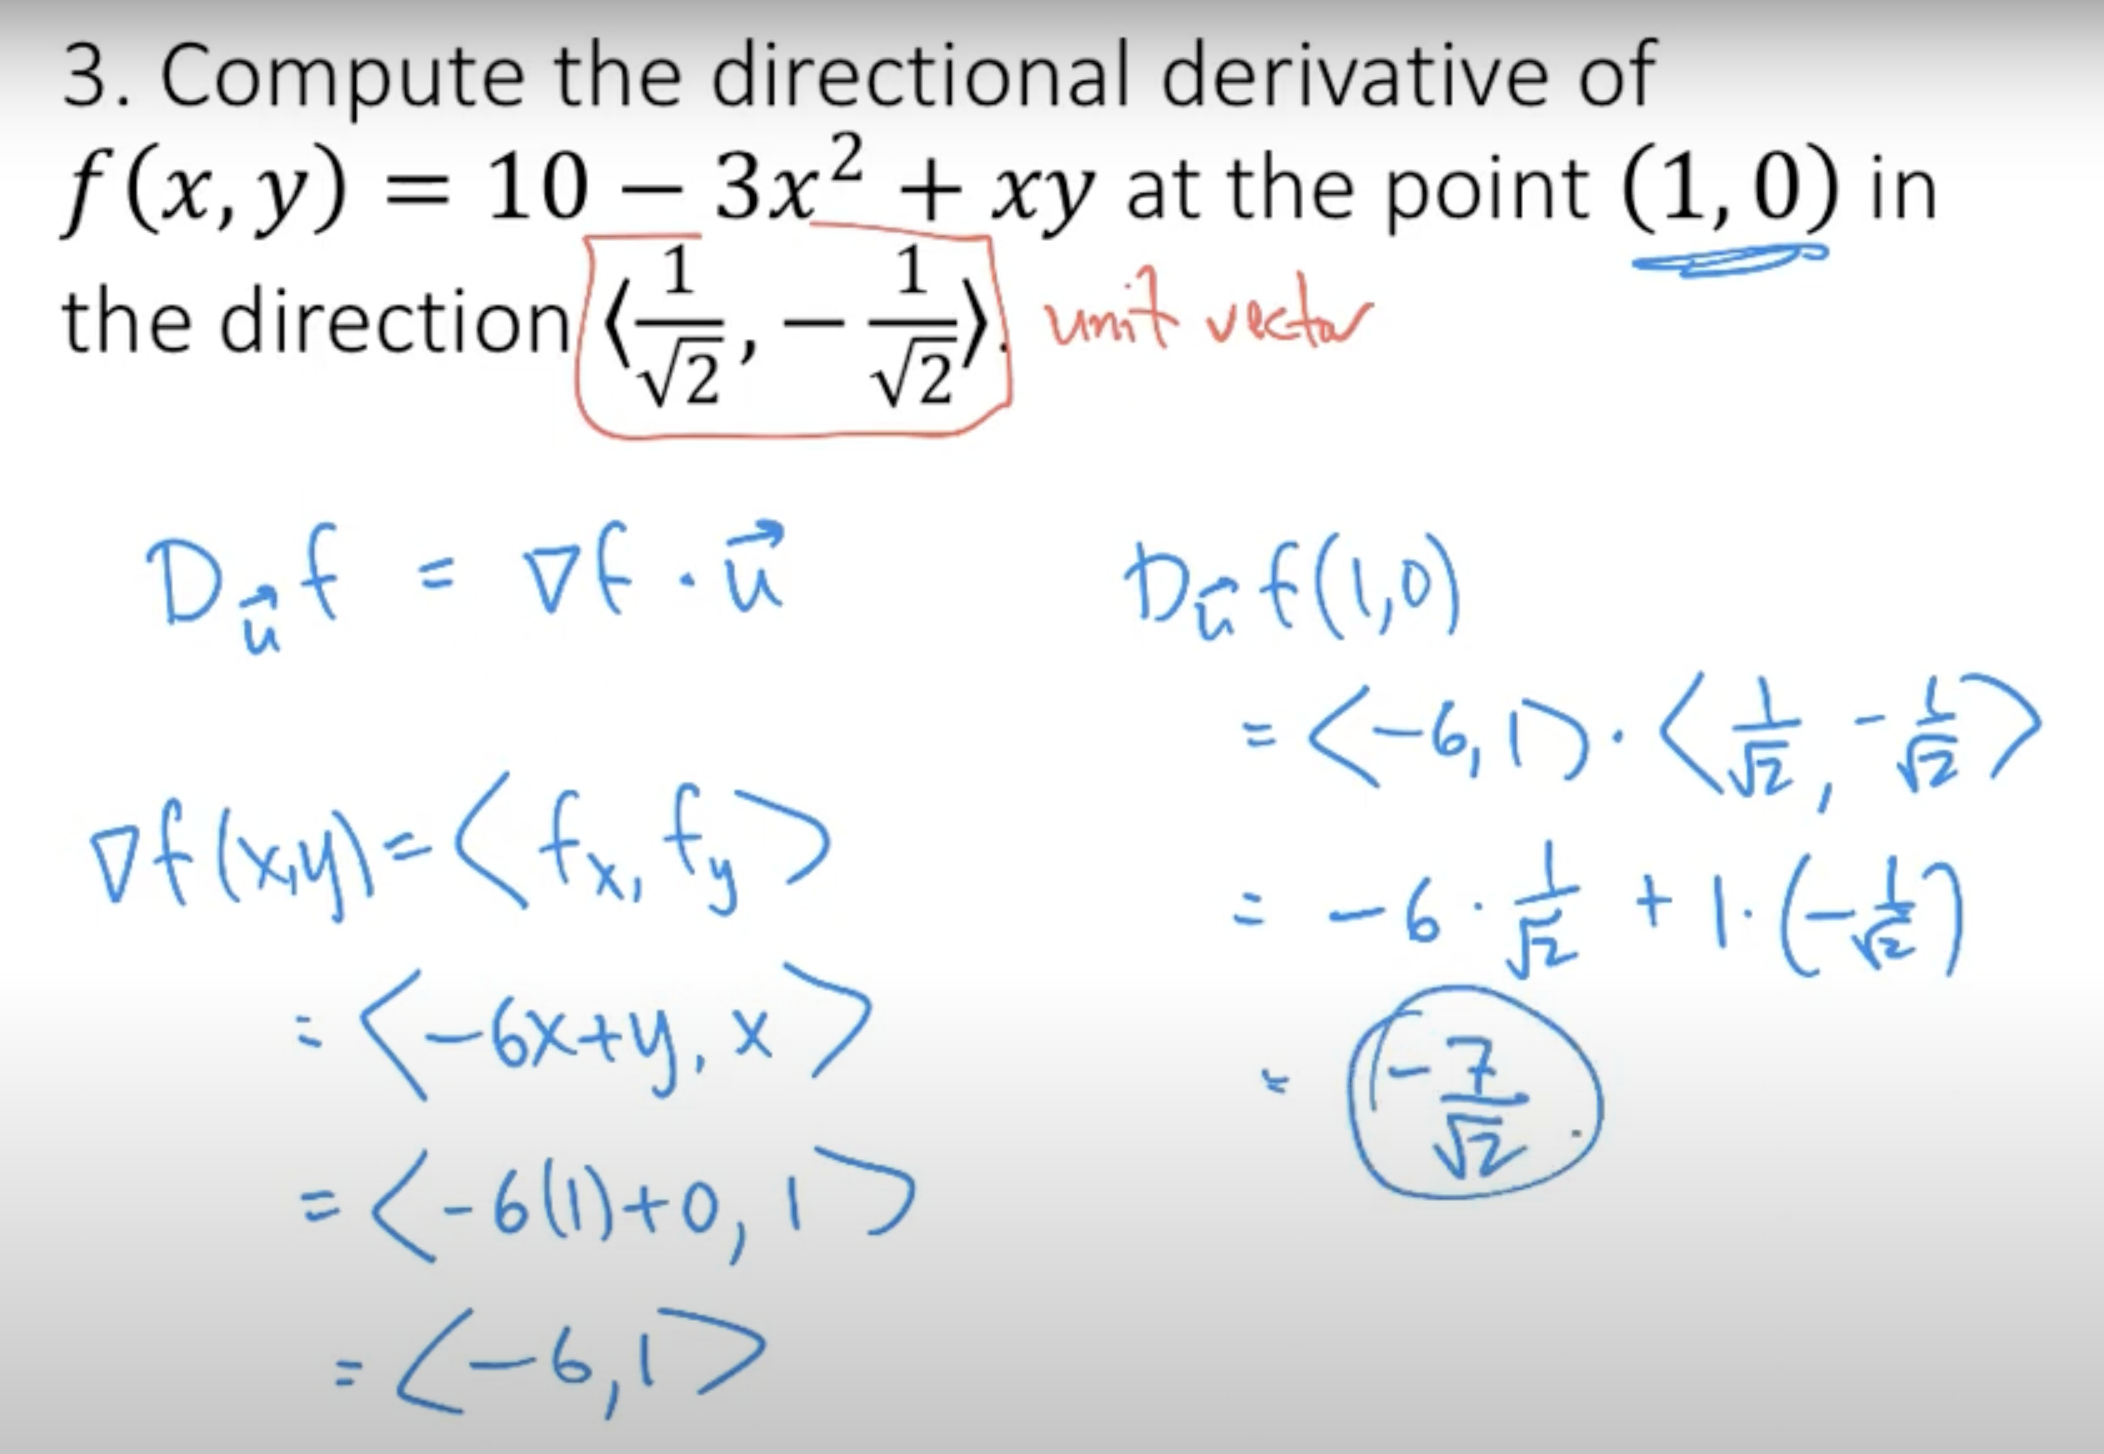 3. Compute the directional derivative of
f(x, y) = 10 − 3x² + xy at the point (1, 0) in
the direction ⟨1/√2, −1/√2⟩. unit vector
D_u⃗ f = ∇f · u⃗
∇f(x,y) = ⟨f_x, f_y⟩
= ⟨−6x+y, x⟩
= ⟨−6(1)+0, 1⟩
= ⟨−6, 1⟩
D_u⃗ f(1,0)
= ⟨−6, 1⟩ · ⟨1/√2, −1/√2⟩
= −6 · 1/√2 + 1 · (−1/√2)
= −7/√2.